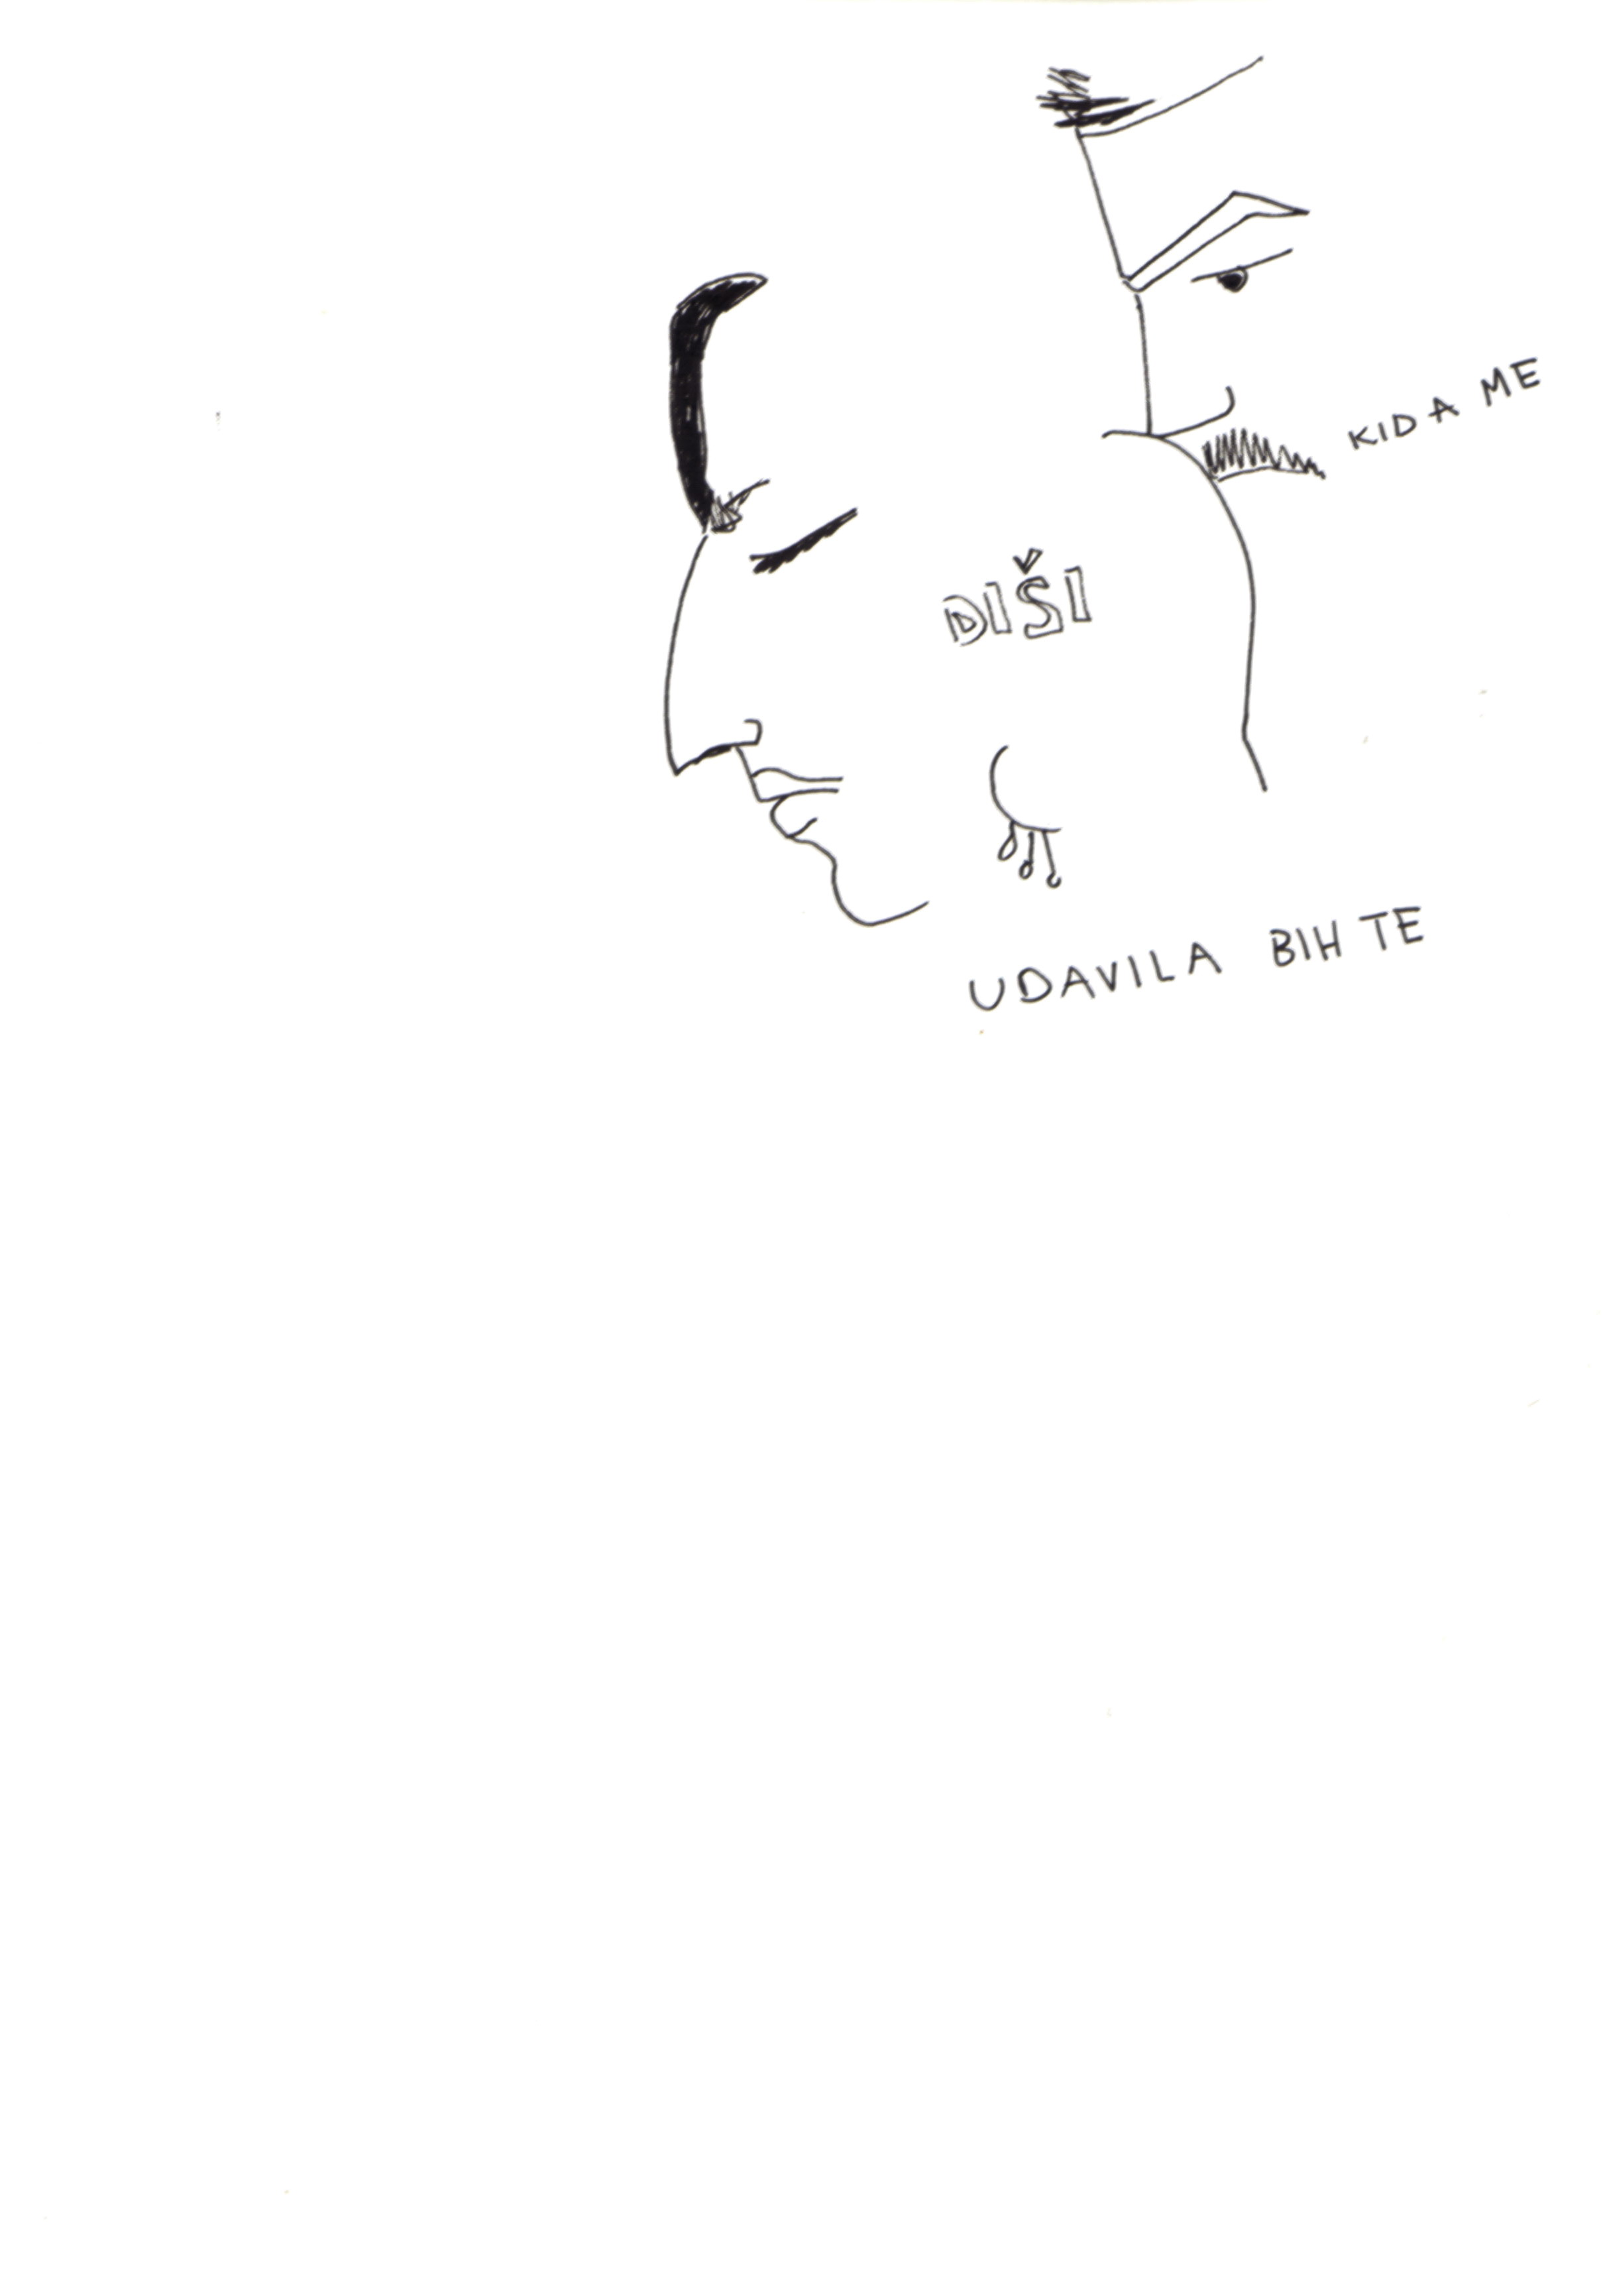 KIDA ME
DIŠI
UDAVILA BIH TE